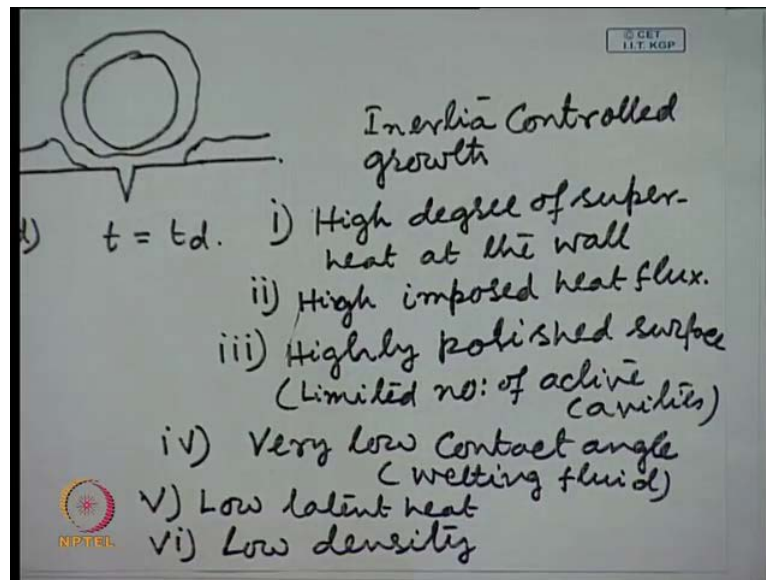 © CET
I.I.T. KGP
Inertia Controlled
growth
d) t = td.
i) High degree of super-
heat at the wall
ii) High imposed heat flux.
iii) Highly polished surface
(Limited no: of active
cavities)
iv) Very low contact angle
(wetting fluid)
v) Low latent heat
vi) Low density
NPTEL